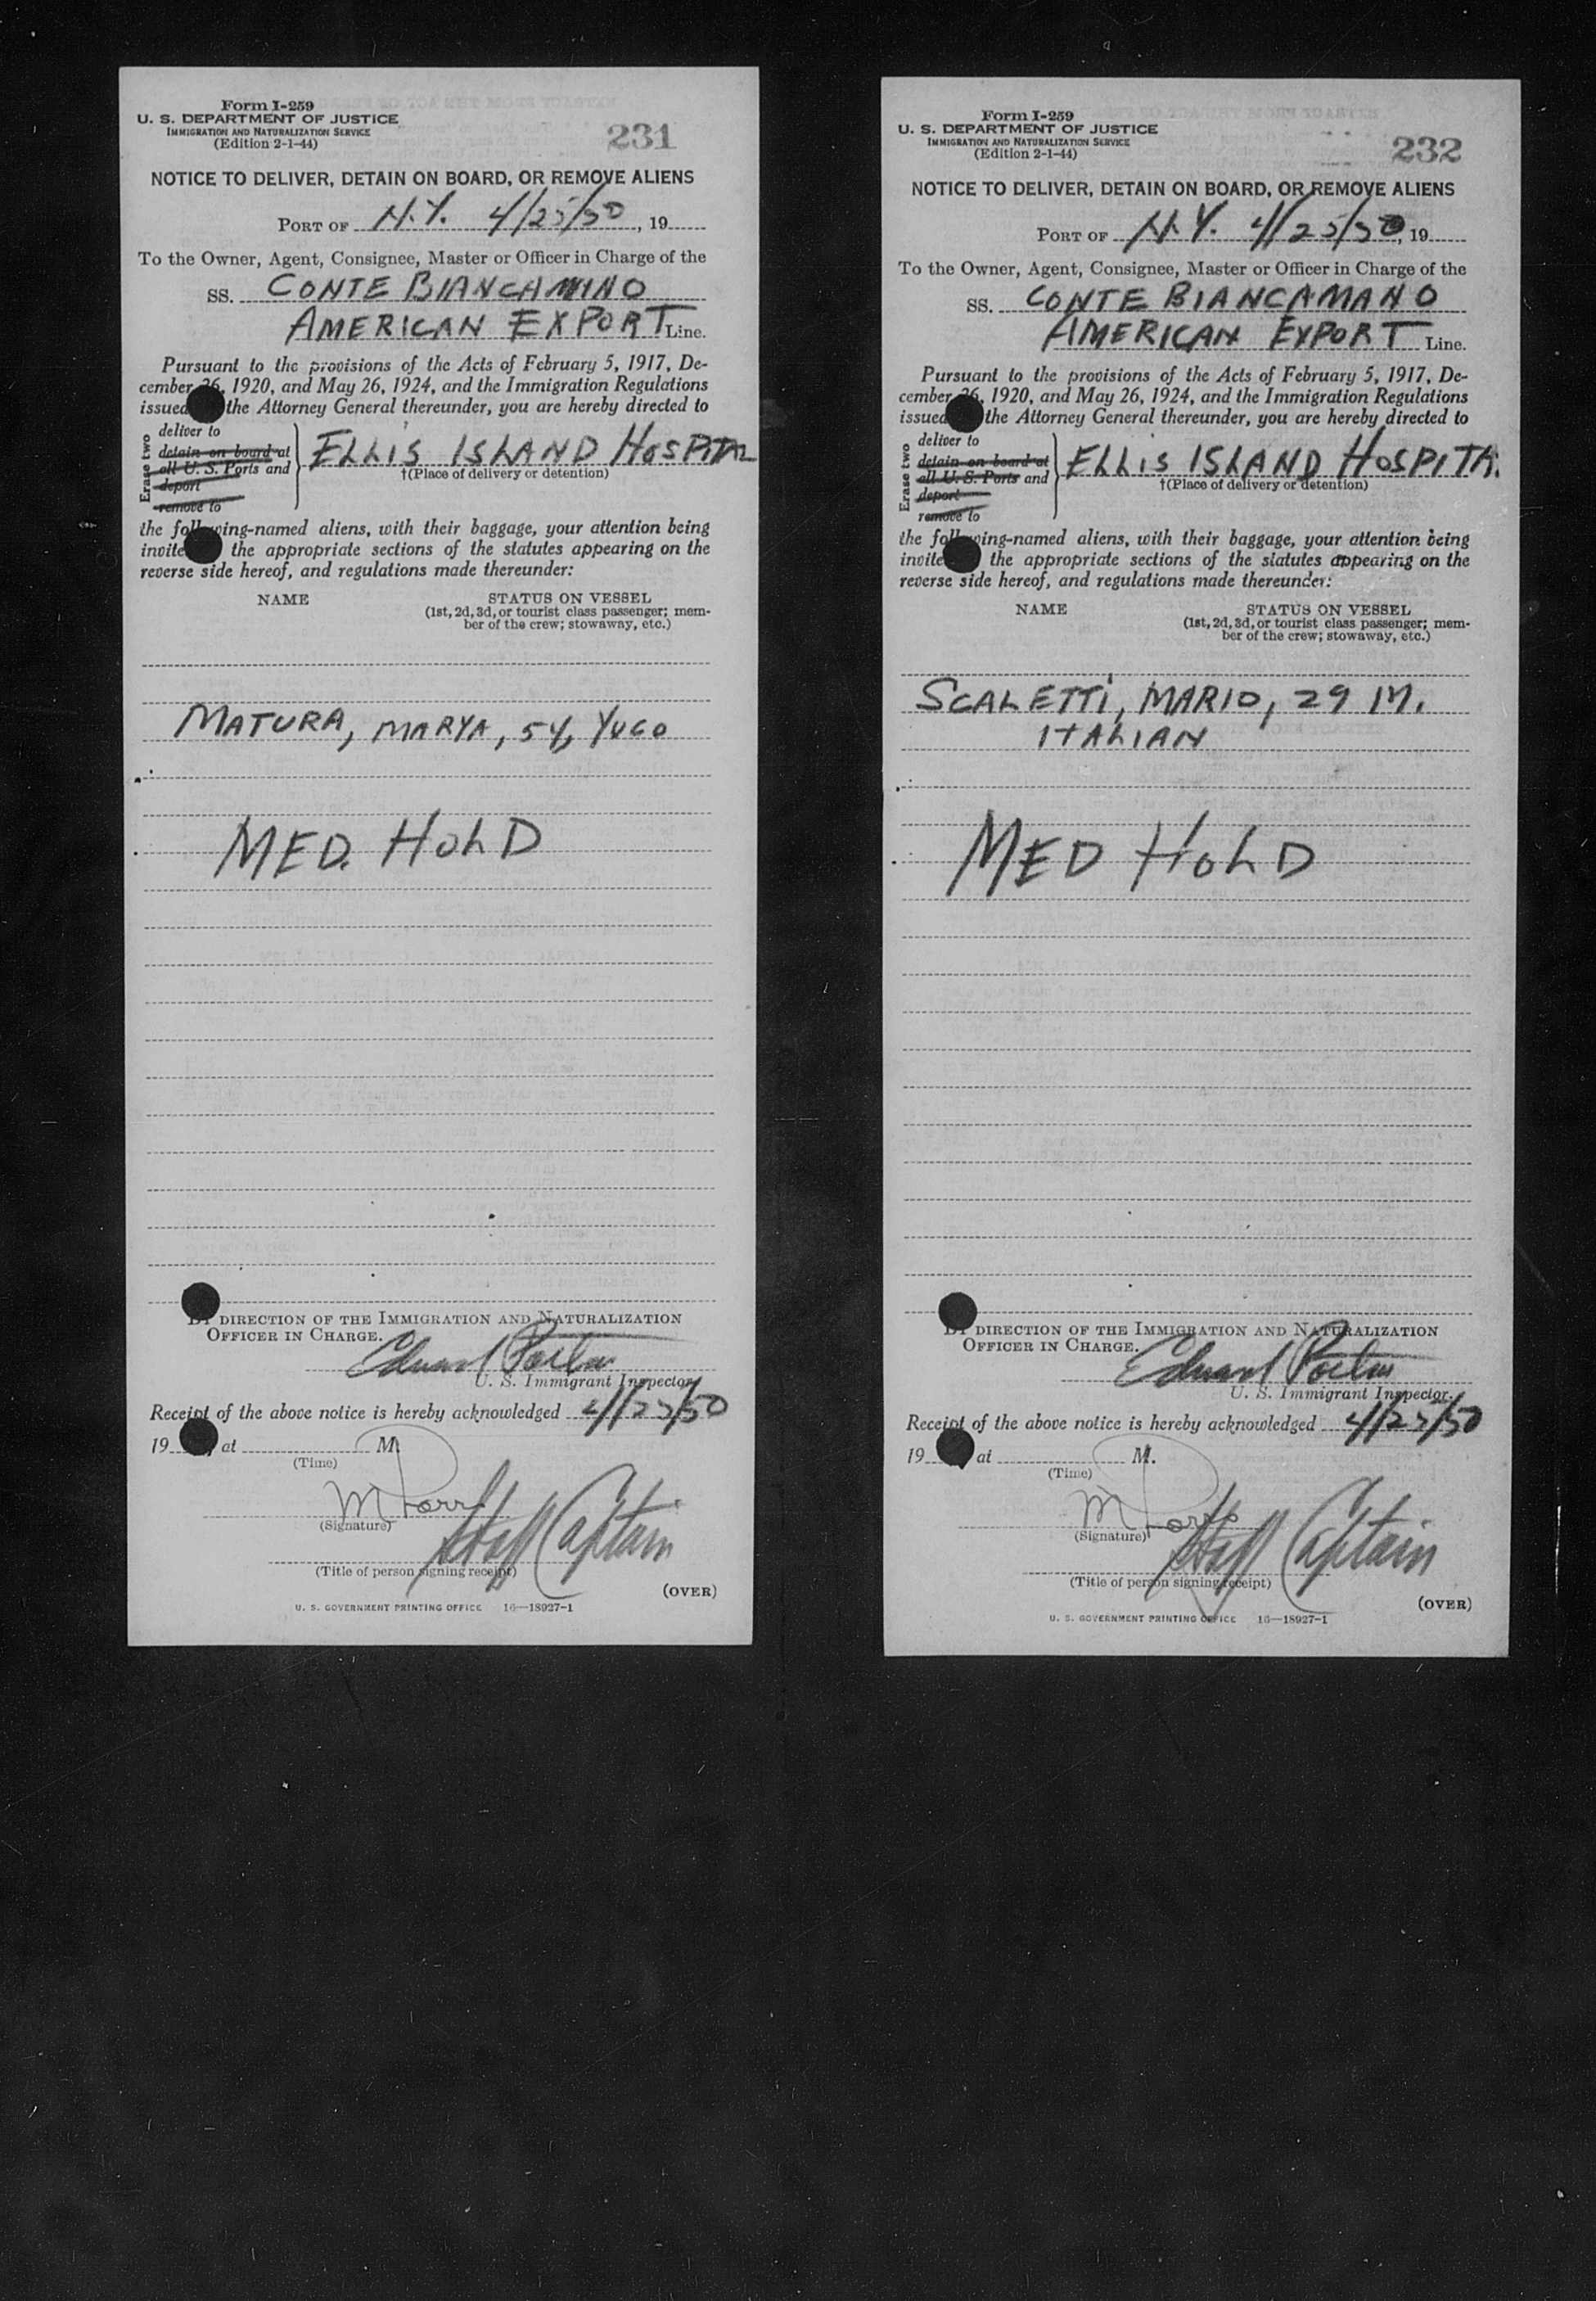 Form I-259
U. S. DEPARTMENT OF JUSTICE
IMMIGRATION AND NATURALIZATION SERVICE
(Edition 2-1-44)
231
NOTICE TO DELIVER, DETAIN ON BOARD, OR REMOVE ALIENS
PORT OF N.Y. 4/25/50, 19
To the Owner, Agent, Consignee, Master or Officer in Charge of the
SS. CONTE BIANCAMINO
AMERICAN EXPORT Line.
Pursuant to the provisions of the Acts of February 5, 1917, De-
cember 26, 1920, and May 26, 1924, and the Immigration Regulations
issued the Attorney General thereunder, you are hereby directed to
Erase two
deliver to
detain on board at
all U. S. Ports and
deport
remove to
ELLIS ISLAND HOSPITAL
†(Place of delivery or detention)
the following-named aliens, with their baggage, your attention being
invite the appropriate sections of the statutes appearing on the
reverse side hereof, and regulations made thereunder:
NAME STATUS ON VESSEL
(1st, 2d, 3d, or tourist class passenger; mem-
ber of the crew; stowaway, etc.)
MATURA, MARYA, 54, YUGO
MED. HOLD
BY DIRECTION OF THE IMMIGRATION AND NATURALIZATION
OFFICER IN CHARGE.
Edward
U. S. Immigrant Inspector.
Receipt of the above notice is hereby acknowledged 4/25/50
19 , at M.
(Time)
(Signature)
Staff Captain
(Title of person signing receipt)
(OVER)
U. S. GOVERNMENT PRINTING OFFICE 16—18927-1
Form I-259
U. S. DEPARTMENT OF JUSTICE
IMMIGRATION AND NATURALIZATION SERVICE
(Edition 2-1-44)
232
NOTICE TO DELIVER, DETAIN ON BOARD, OR REMOVE ALIENS
PORT OF N.Y. 4/25/50, 19
To the Owner, Agent, Consignee, Master or Officer in Charge of the
SS. CONTE BIANCAMANO
AMERICAN EXPORT Line.
Pursuant to the provisions of the Acts of February 5, 1917, De-
cember 26, 1920, and May 26, 1924, and the Immigration Regulations
issued the Attorney General thereunder, you are hereby directed to
Erase two
deliver to
detain on board at
all U. S. Ports and
deport
remove to
ELLIS ISLAND HOSPITA.
†(Place of delivery or detention)
the following-named aliens, with their baggage, your attention being
invite the appropriate sections of the statutes appearing on the
reverse side hereof, and regulations made thereunder:
NAME STATUS ON VESSEL
(1st, 2d, 3d, or tourist class passenger; mem-
ber of the crew; stowaway, etc.)
SCALETTI, MARIO, 29 M.
ITALIAN
MED HOLD
BY DIRECTION OF THE IMMIGRATION AND NATURALIZATION
OFFICER IN CHARGE.
Edward
U. S. Immigrant Inspector.
Receipt of the above notice is hereby acknowledged 4/25/50
19 , at M.
(Time)
(Signature)
Staff Captain
(Title of person signing receipt)
(OVER)
U. S. GOVERNMENT PRINTING OFFICE 16—18927-1